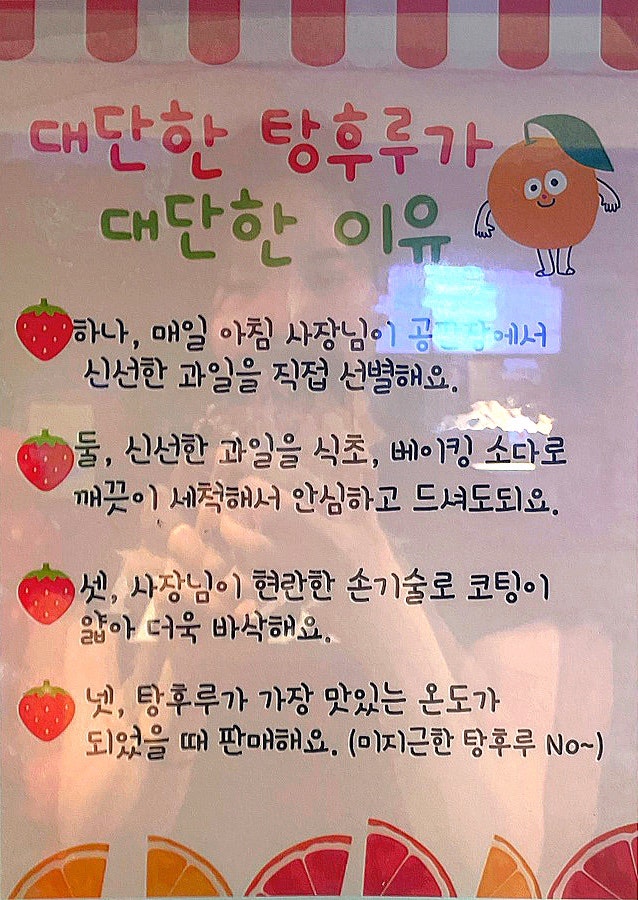 대단한 탕후루가
대단한 이유
하나, 매일 아침 사장님이 공판장에서
신선한 과일을 직접 선별해요.
둘, 신선한 과일을 식초, 베이킹 소다로
깨끗이 세척해서 안심하고 드셔도되요.
셋, 사장님이 현란한 손기술로 코팅이
얇아 더욱 바삭해요.
넷, 탕후루가 가장 맛있는 온도가
되었을 때 판매해요. (미지근한 탕후루 No~)